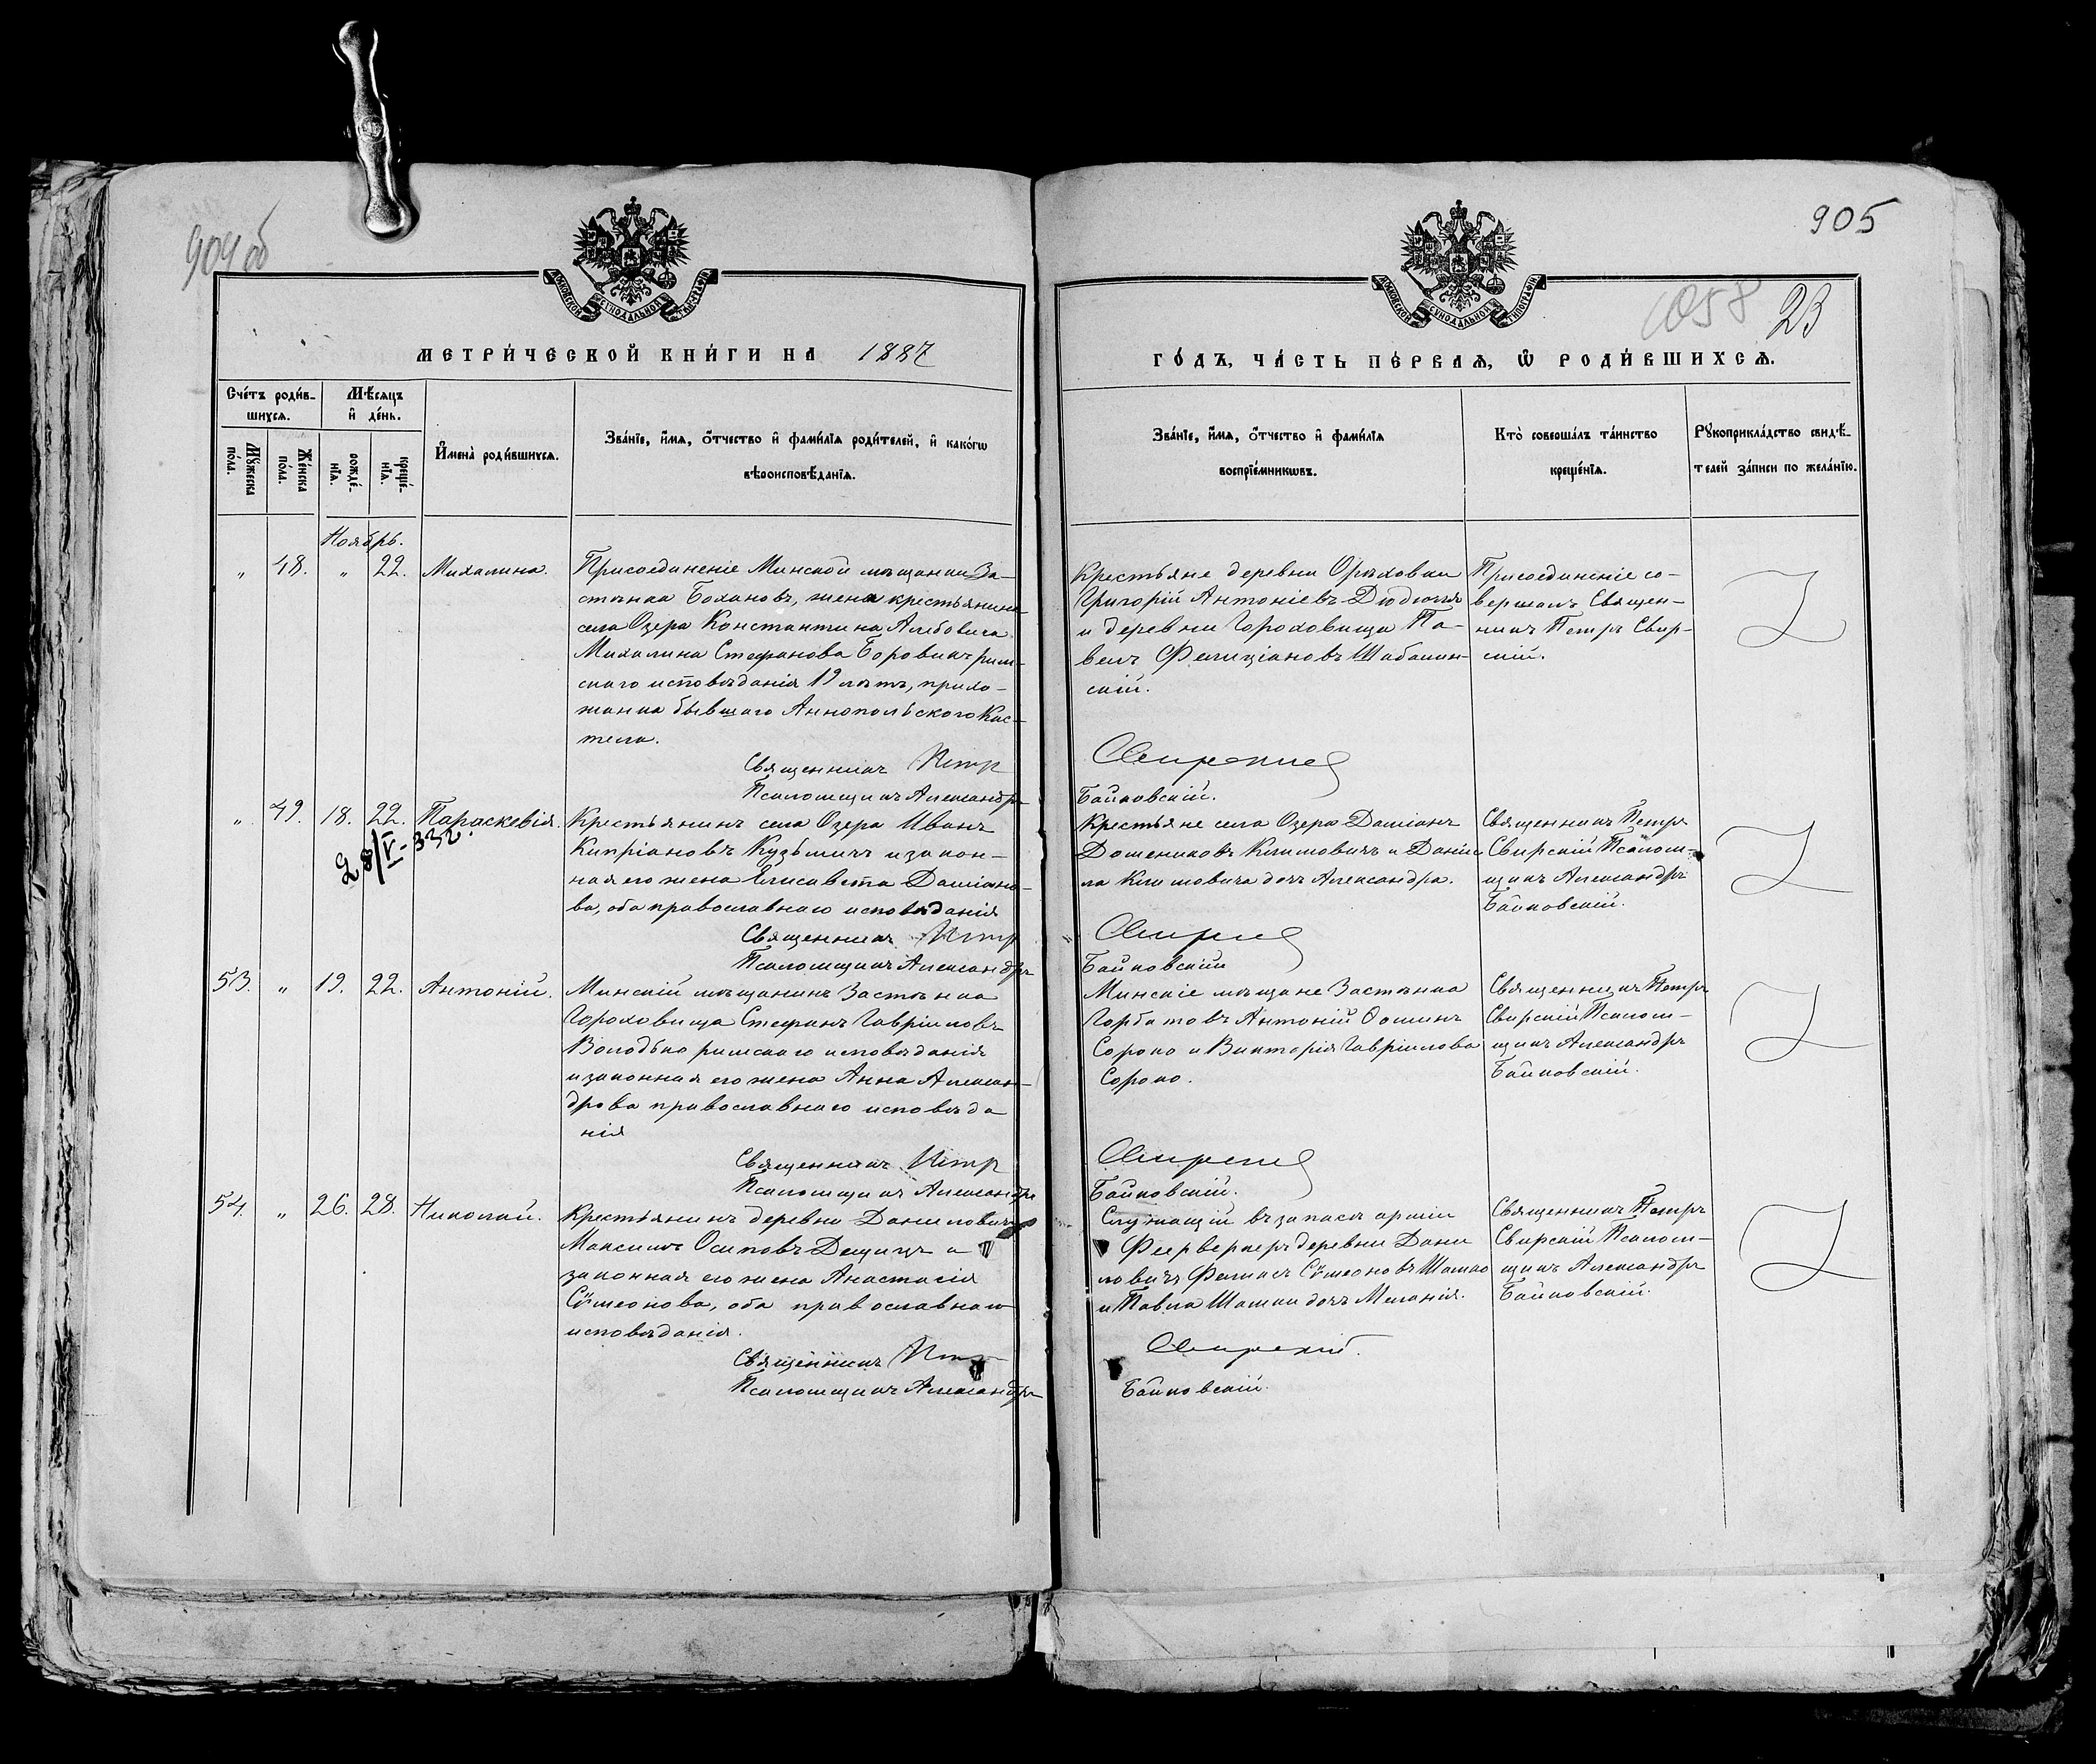 904 об
905
1058
23
МОСКОВСКОЙ СѴНОДАЛЬНОЙ ТИПОГРАФІИ
МОСКОВСКОЙ СѴНОДАЛЬНОЙ ТИПОГРАФІИ
МЕТРИ́ЧЕСКОЙ КНИ́ГИ НА 1887
ГО́ДЪ, ЧА́СТЬ ПЕ́РВАЯ, Ѡ РОДИ́ВШИХСЯ.
Сче́тъ роди́в-
шихся.
Мѣ́сяцъ
и де́нь.
Му́жеска
по́ла.
Же́нска
по́ла.
рожде́-
нїя.
креще́-
нїя.
Имена̀ роди́вшихся.
Зва́нїе, имя, о́тчество и фами́лїя роди́телей, и како́гѡ
вѣроисповѣ́данїя.
Зва́нїе, имя, о́тчество и фами́лїя
воспрїе́мникѡвъ.
Кто̀ соверша́лъ та́инство
креще́нїя.
Рꙋкоприкла́дство свидѣ́-
телей за́писи по жела́нїю.
Ноябрь.
„ 48. „ 22. Михалина.
Присоединеніе Минской мѣщанки За-
стѣнка Бохановъ, жена крестьянина
села Озера Константина Алебовича
Михалина Стефанова Боровикъ рим-
скаго исповѣданія 19 лѣтъ, прихо-
жанка бывшаго Аннопольского Кос-
тела.
Священникъ Петръ
Псаломщикъ Александръ
Крестьяне деревни Орѣховки
Григорій Антоніевъ Дюдюля
и деревни Гороховища Па-
велъ Фелиціановъ Шабалин-
скій.
Свирскій
Байковскій.
Присоединеніе со-
вершалъ Священ-
никъ Петръ Свир-
скій.
„ 49. 18. 22. Параскевія.
28/V-332.
Крестьянинъ села Озера Иванъ
Кипріановъ Кузьмичъ и закон-
ная его жена Елисавета Даміано-
ва, оба православнаго исповѣданія
Священникъ Петръ
Псаломщикъ Александръ
Крестьяне села Озера Даміанъ
Климовичъ и Даніи-
ла Климовича дочь Александра.
Свирскій
Байковскій
Священникъ Петръ
Свирскій Псалом-
щикъ Александръ
Байковскій.
53. „ 19. 22. Антоній.
Минскій мѣщанинъ Застѣнка
Гороховища Стефанъ Гавріиловъ
Володько римскаго исповѣданія
и законная его жена Анна Алексан-
дрова православнаго исповѣда
нія
Священникъ Петръ
Псаломщикъ Александръ
Минскіе мѣщане Застѣнка
Горбатовъ Антоній Ѳоминъ
Сороко и Викторія Гавріилова
Сороко.
Свирскій
Байковскій.
Священникъ Петръ
Свирскій Псалом-
щикъ Александръ
Байковскій.
54. „ 26. 28. Николай.
Крестьянинъ деревни Даниловичъ
Максимъ Осиповъ Дещицъ и
законная его жена Анастасія
Сѵмеонова, оба православнаго
исповѣданія.
Священникъ Петръ
Псаломщикъ Александръ
Служащій въ запасѣ арміи
Феерверкеръ деревни Дани
ловичъ Сѵмеоновъ Шашко
и Павла Шашки дочь Меланія.
Свирскій.
Байковскій.
Священникъ Петръ
Свирскій Псалом-
щикъ Александръ
Байковскій.